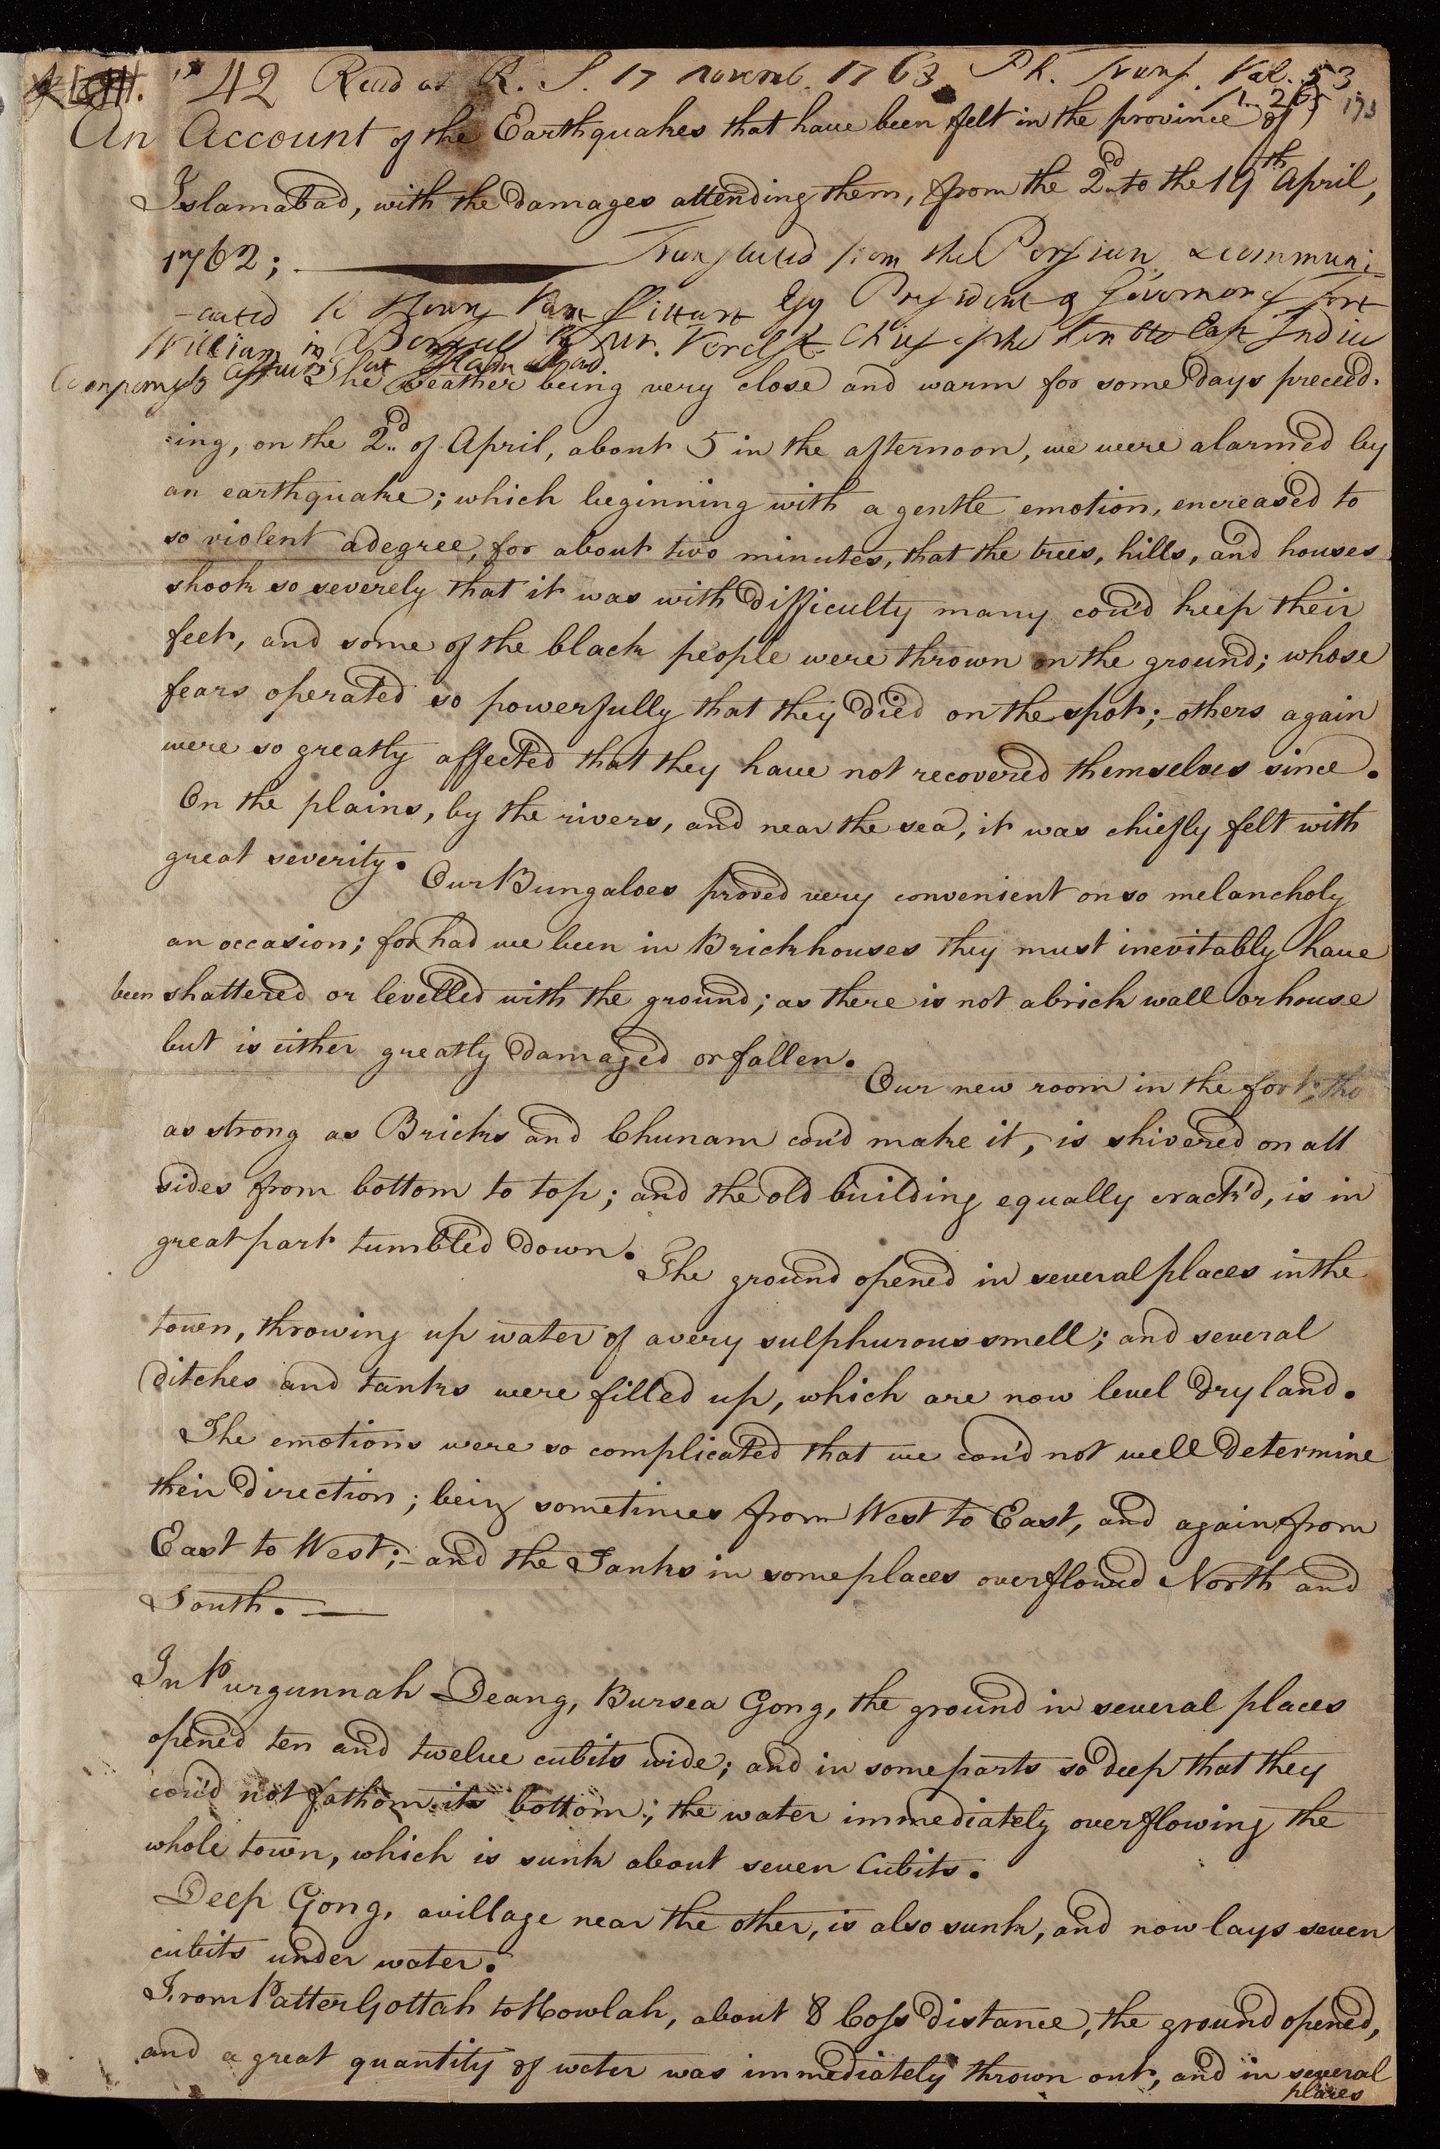 No 42 Read at R. S. 17 novemb. 1763. Ph. Trans. Vol. 53
p. 265 173
An Account of the Earthquakes that have been felt in the province of
Islamabad, with the damages attending them, from the 2d to the 19th April,
1762; Translated from the Persian, & communi-
-cated to Henry Van Sittart Esq President & Governor of Fort
William in Bengal by Mr. Verelst Chief of the East India
Company's affairs at Islamabad.
The weather being very close and warm for some days preceed-
-ing, on the 2d. of April, about 5 in the afternoon, we were alarmed by
an earthquake; which beginning with a gentle emotion, encreased to
so violent a degree, for about two minutes, that the trees, hills, and houses
shook so severely that it was with difficulty many cou'd keep their
feet, and some of the black people were thrown on the ground; whose
fears operated so powerfully that they died on the spot; others again
were so greatly affected that they have not recovered themselves since.
On the plains, by the rivers, and near the sea, it was chiefly felt with
great severity. Our Bungaloes proved very convenient on so melancholy
an occasion; for had we been in Brickhouses they must inevitably have
been shattered or levelled with the ground; as there is not a brick wall or house
but is either greatly damaged or fallen.
Our new room in the fort, tho
as strong as Bricks and Chunam cou'd make it, is shivered on all
sides from bottom to top; and the old building equally crack'd, is in
great part tumbled down.
The ground opened in several places in the
town, throwing up water of a very sulphurous smell; and several
ditches and tanks were filled up, which are now level dry land.
The emotions were so complicated that we cou'd not well determine
their direction; being sometimes from West to East, and again from
East to West; and the Tanks in some places overflowed North and
South.
In Purgunnah Deang, Bursea Gong, the ground in several places
opened ten and twelve cubits wide; and in some parts so deep that they
cou'd not fathom its bottom; the water immediately overflowing the
whole town, which is sunk about seven Cubits.
Deep Gong, a village near the other, is also sunk, and now lays seven
cubits under water.
From Patter Gottah to Howlah, about 8 Coss distance, the ground opened,
and a great quantity of water was immediately thrown out, and in several
places